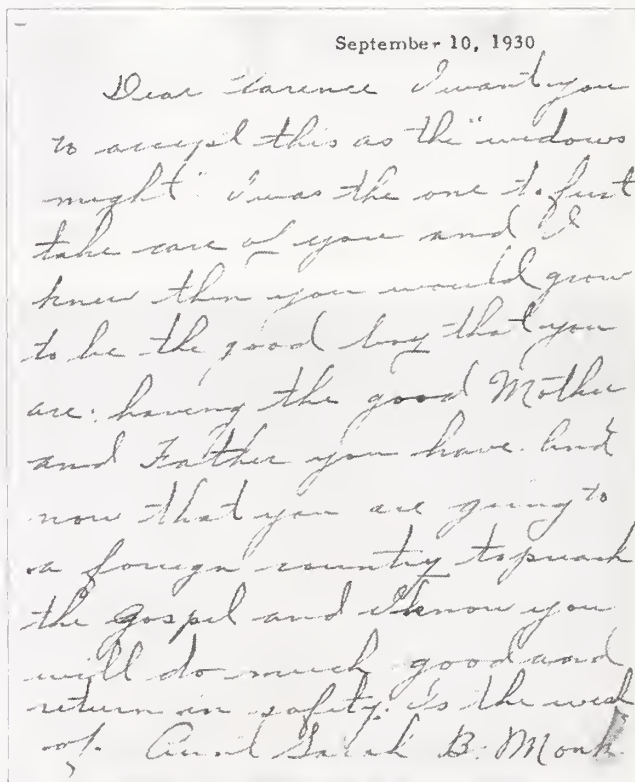 September 10, 1930
Dear Clarence I want you
to accept this as the "widows
might" I was the one to first
take care of you and I
knew then you would grow
to be the good boy that you
are: having the good Mother
and Father you have. And
now that you are going to
a foreign country to preach
the Gospel and I know you
will do much good and
return in safety. Is the wish
of. Aunt Sarah B. Monk.